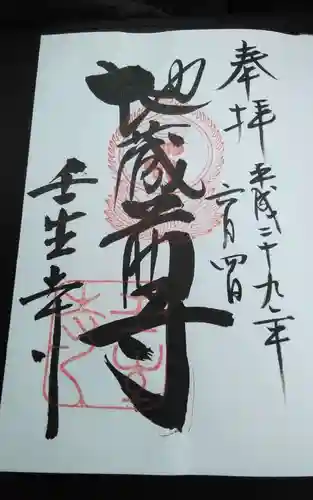 奉拝 平成二十九年
六月四日
地蔵尊
壬生寺